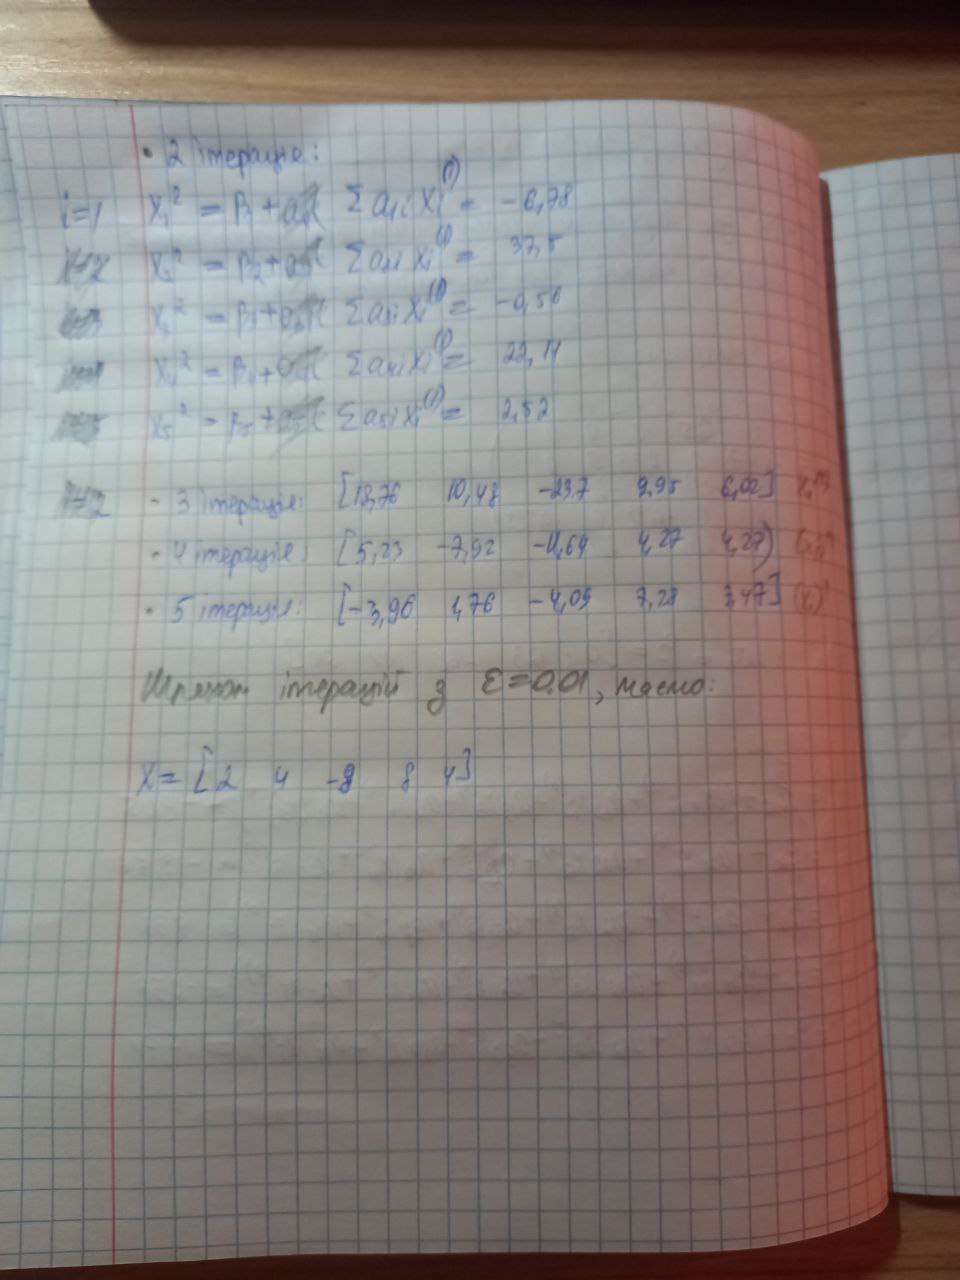 • 2 ітерація:
i=1 X₁² = β₁ + Σ a₁ᵢ Xᵢ⁽¹⁾ = -6,78
X₂² = β₂ + Σ a₂ᵢ Xᵢ⁽¹⁾ = 37,5
X₃² = β₃ + Σ a₃ᵢ Xᵢ⁽¹⁾ = -0,56
X₄² = β₄ + Σ a₄ᵢ Xᵢ⁽¹⁾ = 22,11
X₅² = β₅ + Σ a₅ᵢ Xᵢ⁽¹⁾ = 2,52
• 3 ітерація: [18,76 10,48 -23,7 9,95 6,02]
• 4 ітерація: [5,23 -7,92 4,27 4,27)
• 5 ітерація: [-3,96 1,76 -4,09 7,28 3,47]
Шляхом ітерацій з ε=0,01, маємо:
X = [2 4 8 4]